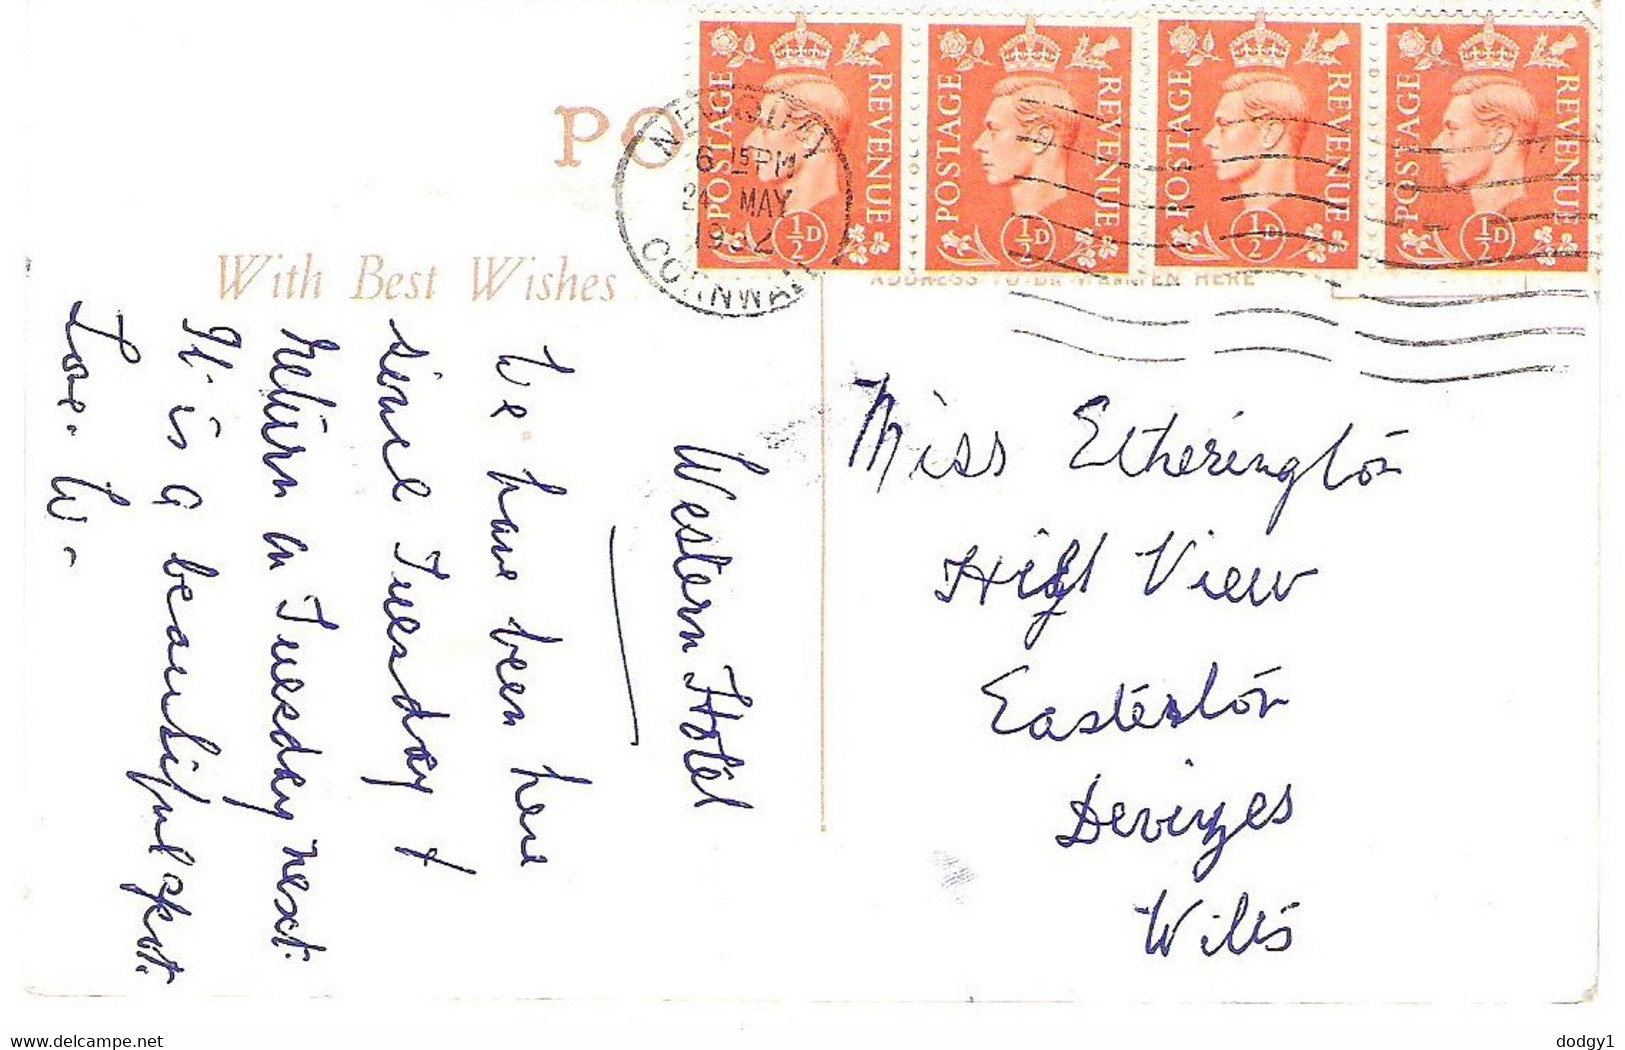 POSTAGE REVENUE ½D
POSTAGE REVENUE ½D
POSTAGE REVENUE ½D
POSTAGE REVENUE ½D
PO
NEWQUAY
6 15 PM
24 MAY
CORNWALL
With Best Wishes
ADDRESS TO BE WRITTEN HERE
Western Hotel
We have been here
since Tuesday &
return on Tuesday next.
It is a beautiful spot.
Love. W-
Miss Etherington
High View
Easterton
Devizes
Wilts
www.delcampe.net
dodgy1